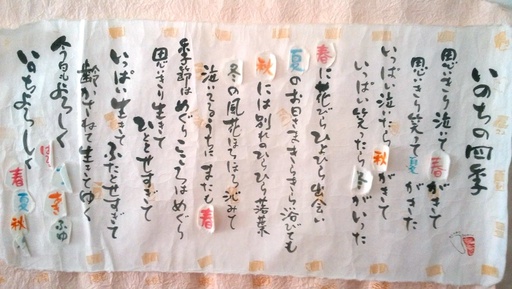 いのちの四季
思いきり泣いて春がきて
思いきり笑って夏がきた
いっぱい泣いたら秋がきて
いっぱい笑ったら冬がいった
春に花びらひとひら出会い
夏のお日さまきらきら浴びても
秋には別れのひらひら落葉
冬の風花ほろほろ沁みて
泣いてるうちにまたも春
季節はめぐり こころはめぐり
思いきり生きて ひとつすぎて
いっぱい生きて ふたつすぎて
齢かさねて生きてゆく
今日もよろしく はる なつ あき ふゆ
いのちよろしく 春夏秋